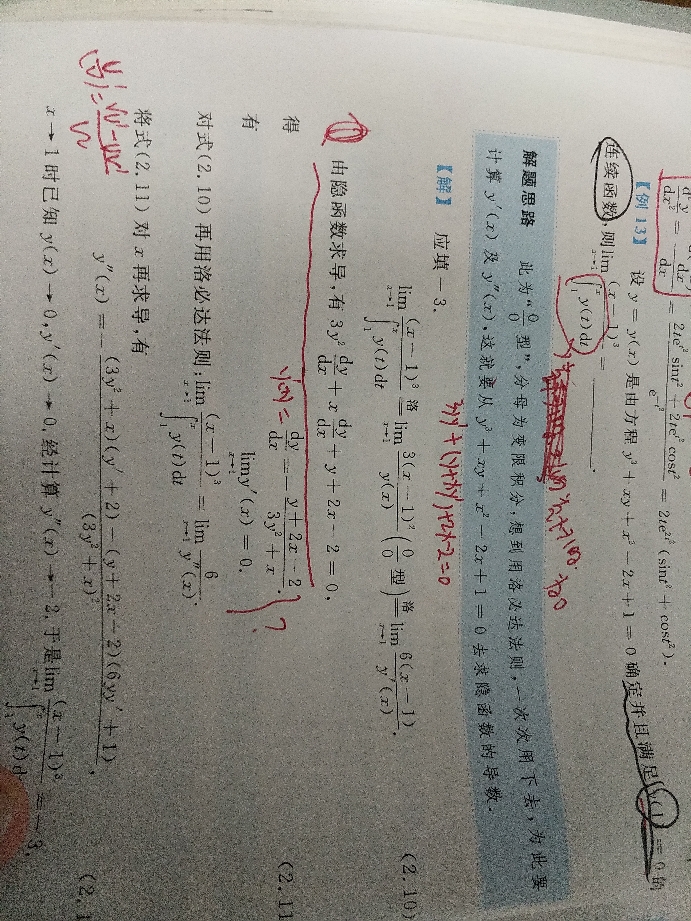 d²y/dx² = dx/dx = (2te^{t²} sint² + 2te^{t²} cost²)/e^{-t²} = 2te^{2t²}(sint² + cost²).
【例 13】 设 y = y(x) 是由方程 y³ + xy + x² − 2x + 1 = 0 确定并且满足 y(1) = 0 的
连续函数,则 lim_{x→1} (x − 1)³/∫₁ˣ y(t)dt = ______.
解题思路 此为“0/0 型”,分母为变限积分,想到用洛必达法则,一次次用下去,为此要
计算 y′(x) 及 y″(x),这就要从 y³ + xy + x² − 2x + 1 = 0 去求隐函数的导数.
3y²y′ + (y+xy′)+2x−2=0
【解】 应填 −3.
lim_{x→1} (x − 1)³/∫₁ˣ y(t)dt 洛= lim_{x→1} 3(x − 1)²/y(x) (0/0 型) 洛= lim_{x→1} 6(x − 1)/y′(x). (2.10)
① 由隐函数求导,有 3y² dy/dx + x dy/dx + y + 2x − 2 = 0,
得 y′(x) = dy/dx = − (y + 2x − 2)/(3y² + x). } ? (2.11
有 lim_{x→1} y′(x) = 0.
对式(2.10)再用洛必达法则:lim_{x→1} (x − 1)³/∫₁ˣ y(t)dt = lim_{x→1} 6/y″(x).
将式(2.11)对 x 再求导,有
y″(x) = − ((3y² + x)(y′ + 2) − (y + 2x − 2)(6yy′ + 1))/(3y² + x)², (2.1
x → 1 时已知 y(x) → 0, y′(x) → 0, 经计算 y″(x) → − 2, 于是 lim_{x→1} (x − 1)³/∫₁ˣ y(t)d = − 3.